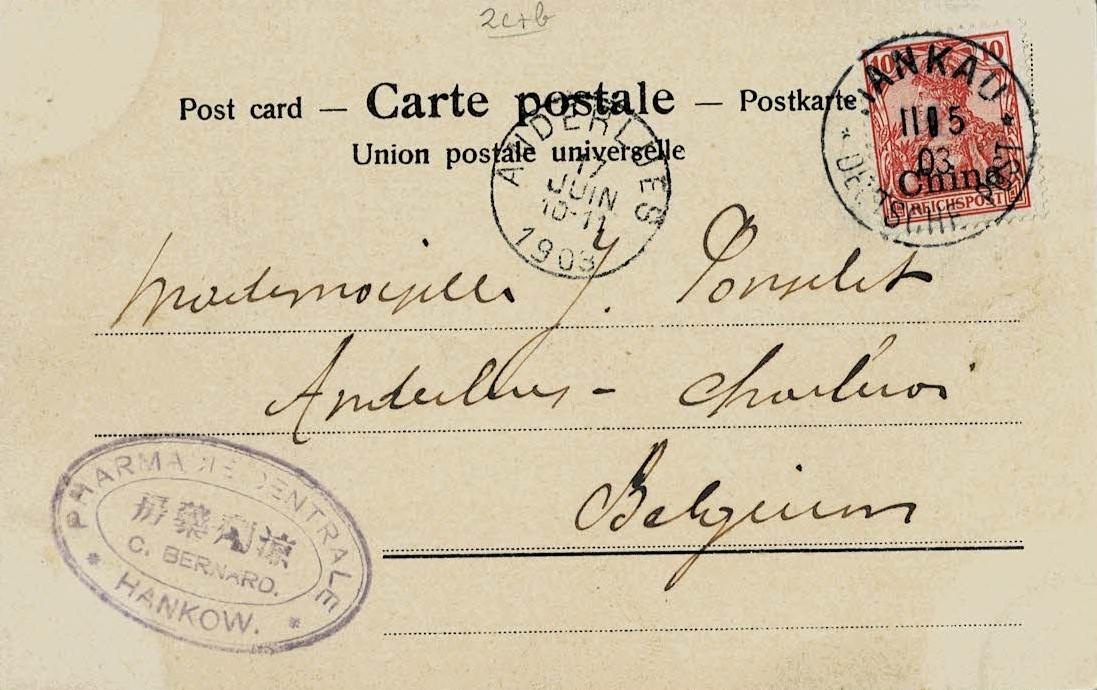 2c+b
Post card — Carte postale — Postkarte
Union postale universelle
ANDERLUES
17
JUIN
10-11
1903
HANKAU
11 5
03
DEUTSCHE POST
10 10
China
REICHSPOST
Mademoiselle J. Ponselet
Anderlues - Charleroi
Belgium
PHARMACIE CENTRALE
房藥
C. BERNARD.
HANKOW.